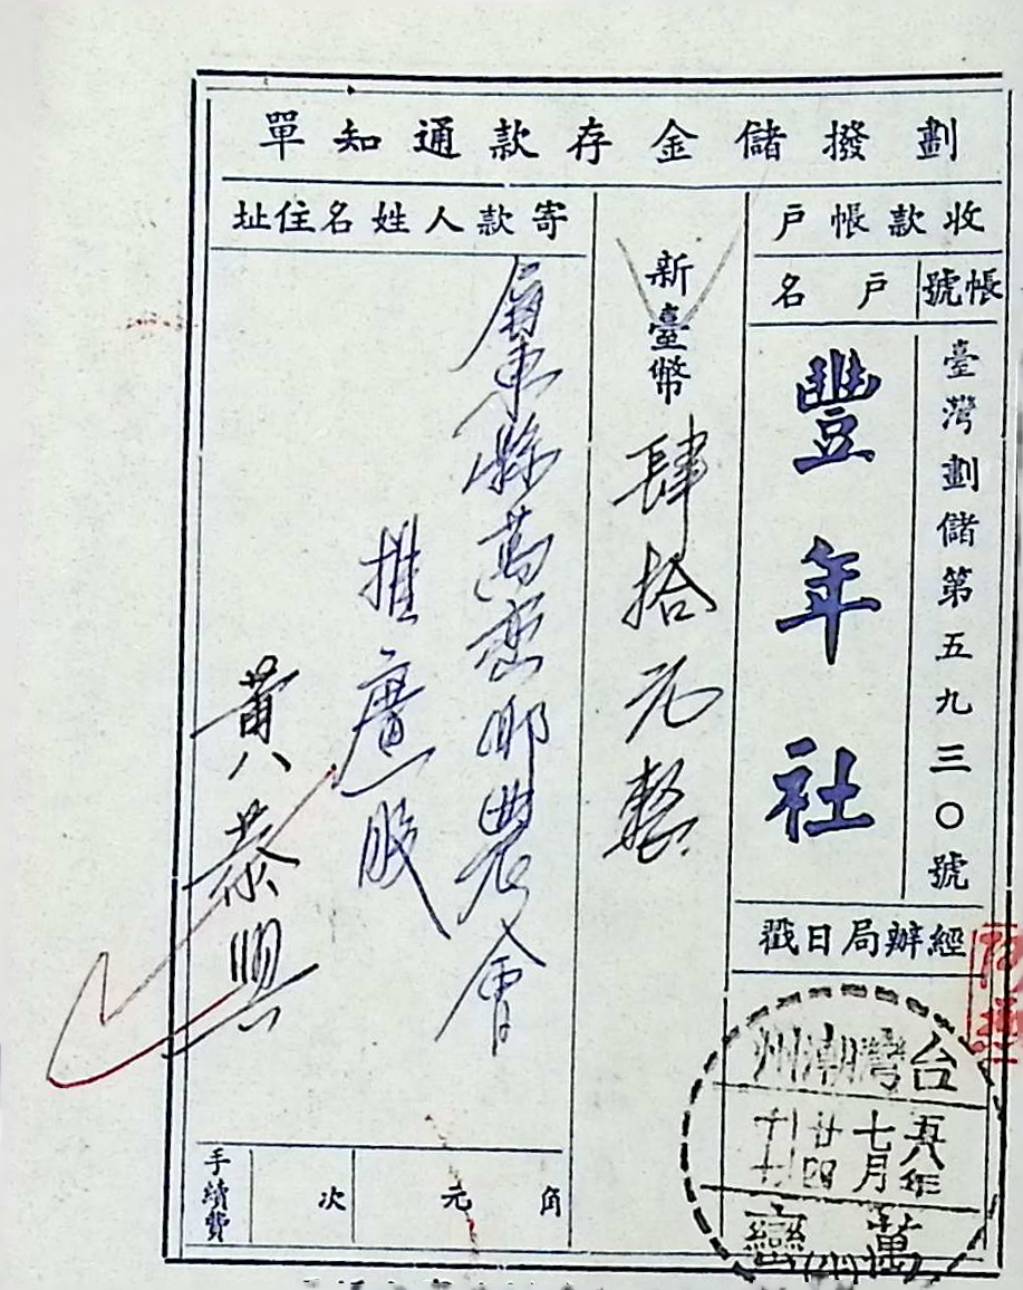 劃撥儲金存款通知單
收款帳戶
帳號
戶名
臺灣劃儲第五九三〇號
豐年社
經辦局日戳
台灣潮州
五八年
七月
廿四
萬巒
新臺幣肆拾元整
寄款人姓名住址
屏東縣萬巒鄉農會
推廣股
黃恭興
手續費
次
元
角